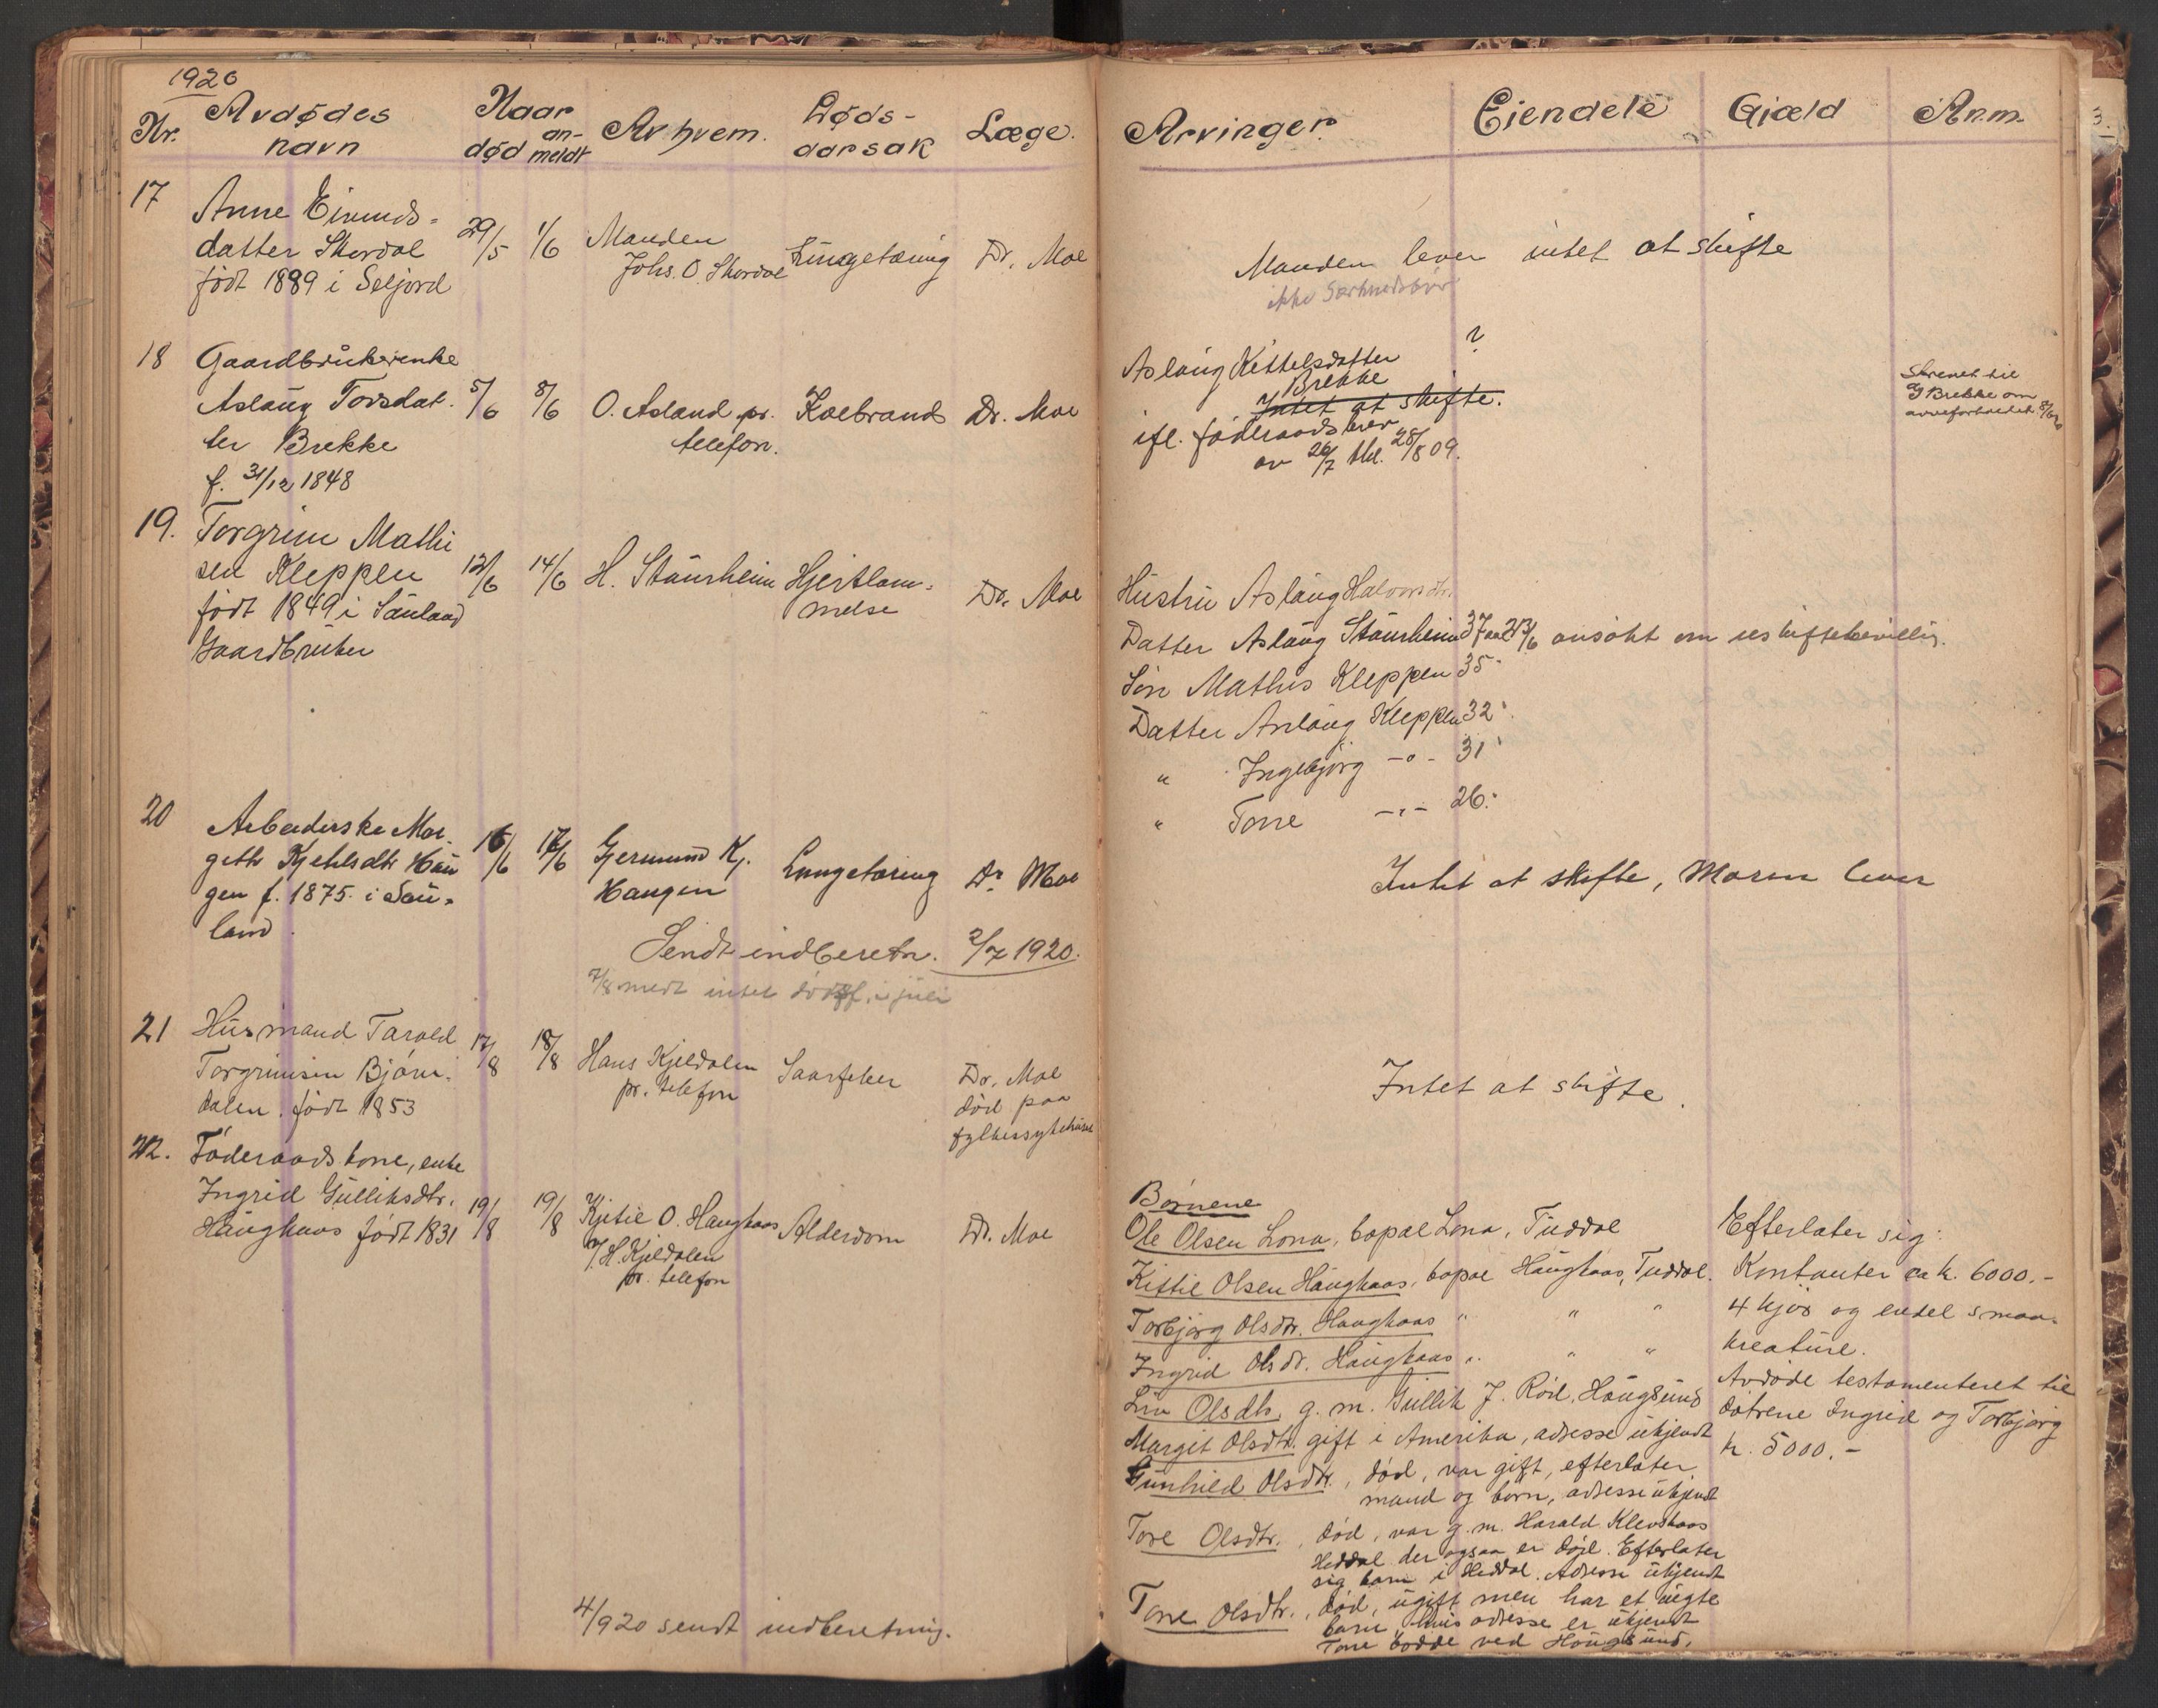 1920
Nr.
Avdødes
navn
Naar
død
an-
meldt
Av hvem.
Døds-
aarsak
Læge.
17
Anne Eivinds-
datter Skordal
født 1889 i Seljord
29/5
1/6
Manden
Johs. O. Skordal
Lungetæring
Dr. Moe
18
Gaardbrukerenke
Aslaug Torsdat-
ter Brekke
f. 31/12 1848
5/6
8/6
O. Asland pr.
telefon.
Kolbrand
Dr. Moe
19.
Torgrim Mathi
sen Kleppen
født 1849 i Sauland
Gaardbruker
12/6
14/6
H. Staurheim
Hjertlam-
melse
Dr. Moe
20
Arbeiderske Mar
gith Kjetilsdtr Hau
gen f. 1875 i Sau-
land.
16/6
17/6
Gjermund Kj.
Haugen
Lungetæring
Dr Moe
Sendt indberetn. 2/7 1920.
7/8 medt intet dødsf. i juli
21
Husmand Tarald
Torgrimsen Bjørn-
dalen. født 1853
17/8
18/8
Hans Kjeldalen
pr. telefon
Saarfeber
Dr. Moe
død paa
fylkessykehuset
22.
Føderaads kone, enke
Ingrid Gulliksdtr.
Haugkaas født 1831
19/8
19/8
Kjetil O. Haugkaas
v/ H. Kjeldalen
pr. telefon
Alderdom
Dr. Moe
4/9 20 sendt indberetning.
Arvinger
Eiendele
Gjæld
Anm.
Manden lever intet at skifte
ikke særkuldsbør
Aslaug Kittelsdatter ?
Brekke
Intet at skifte.
ifl. føderaadsbrev
av 26/7 thl. 28/8 09.
Skrevet til
Brekke om
arveforholdet 8/6 20
Hustru Aslaug Halvorsdtr.
Datter Aslaug Staurheim 37 aar 23/6 ansøkt om uskiftebevillig.
Søn Mathis Kleppen 35
Datter Anlaug Kleppen 32
" Ingebjørg -"- 31
" Tone -"- 26.
Intet at skifte, Moren lever
Intet at skifte.
Børnene
Ole Olsen Lona, bopæl Lona, Tuddal
Kittil Olsen Haugkaas, bopæl Haugkaas, Tuddal.
Torbjørg Olsdtr. Haugkaas " " "
Ingrid Olsdr. Haugkaas " " "
Liv Olsdtr. g. m. Gullik J. Røil, Haugsund
Margit Olsdtr. gift i Amerika, adresse ukjendt
Gunhild Olsdtr., død, var gift, efterlater
mand og børn, adresse ukjendt
Tore Olsdtr., død, var g. m. Harald Klevskaas
Heddal der ogsaa er død. Efterlater
sig barn i Heddal. Adresse ukjendt
Tone Olsdtr., død, ugift men har et uegte
barn, hvis adresse er ukjendt
Tone bodde ved Haugsund.
Efterlater sig:
Kontanter ca k. 6000.-
4 kjør og endel smaa-
kreature.
Avdøde testamenteret til
døtrene Ingrid og Torbjørg
kr. 5000.-